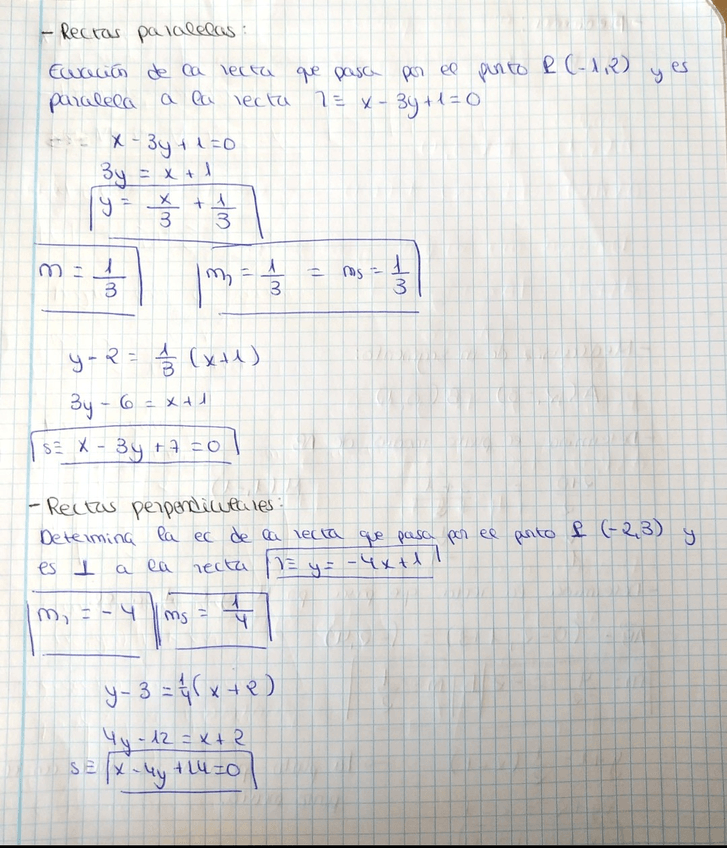 - Rectas paralelas:
Ecuación de la recta que pasa por el punto P (-1,2) y es
paralela a la recta r≡ x - 3y + 1 = 0
x - 3y + 1 = 0
3y = x + 1
y = x/3 + 1/3
m = 1/3 mr = 1/3 = ms = 1/3
y - 2 = 1/3 (x+1)
3y - 6 = x + 1
s≡ x - 3y + 7 = 0
- Rectas perpendiculares:
Determina la ec de la recta que pasa por el punto P (-2,3) y
es ⊥ a la recta r≡ y = -4x + 1
mr = -4 ms = 1/4
y - 3 = 1/4 (x + 2)
4y - 12 = x + 2
s≡ x - 4y + 14 = 0